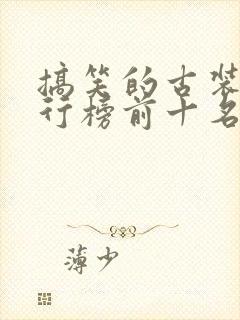 搞笑的古装
行榜前十名
薄少